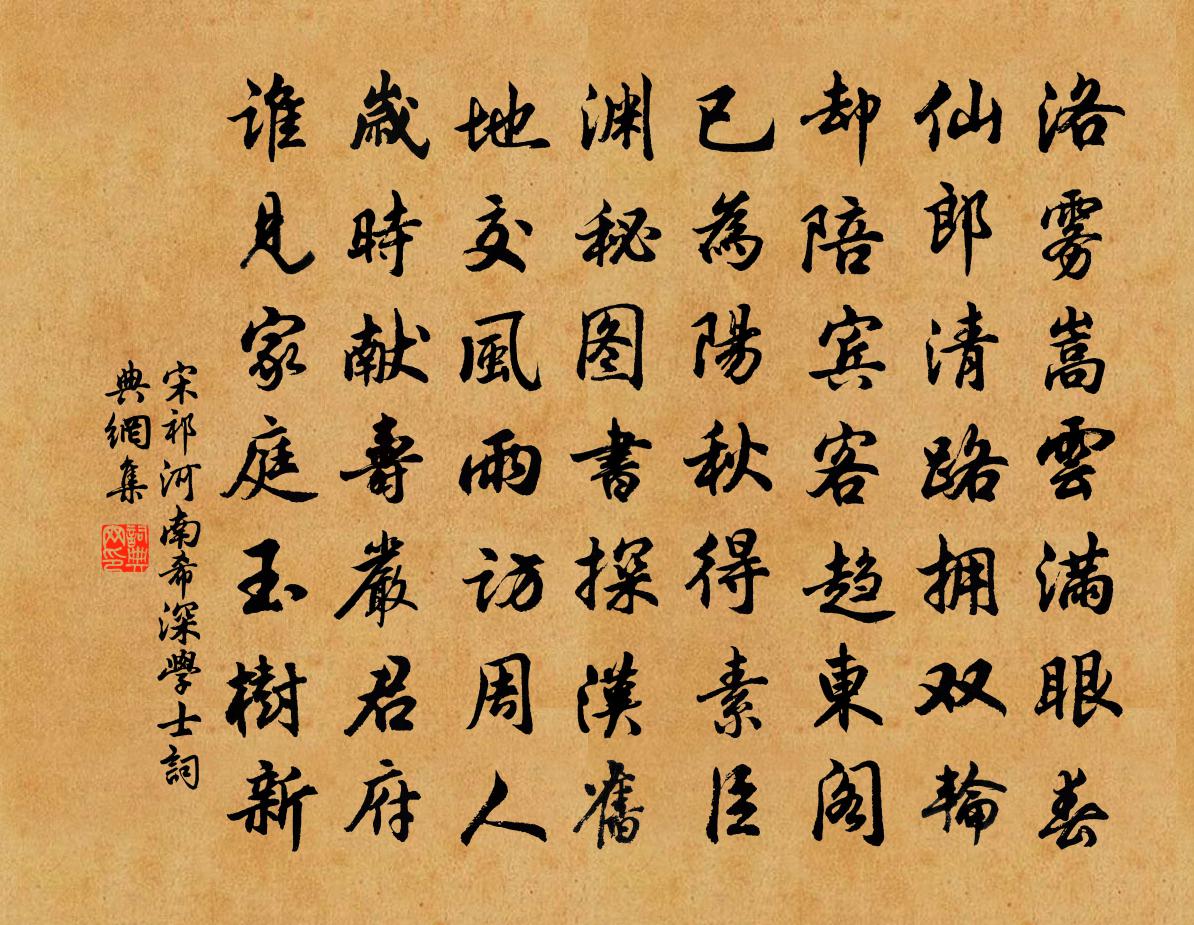 洛雾嵩雲满眼春
仙郎清路拥双輪
却陪宾客趋東阁
已為陽秋得素臣
渊秘图書探漢舊
地交風雨访周人
歲時献壽嚴君府
谁見家庭玉樹新
宋祁河南希深學士詞
典網集
詞典网印